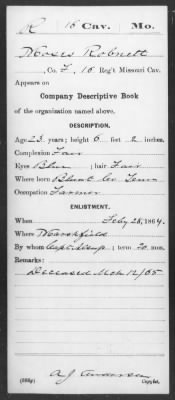 R 16 Cav. Mo.
Moses Robnett
, Co. F, 16 Reg't Missouri Cav.
Appears on
Company Descriptive Book
of the organization named above.
DESCRIPTION.
Age 23 years; height 6 feet 2 inches.
Complexion Fair
Eyes Blue; hair Fair
Where born Blount Co Tenn
Occupation Farmer
ENLISTMENT.
When Feby 28, 1864.
Where Marshfield
By whom Capt. ; term 20 mos.
Remarks:
Deceased Mch 12/65
A J Anderson
Copyist.